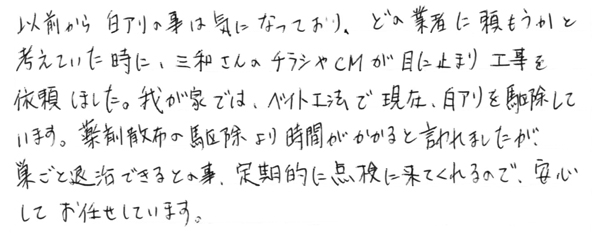 以前から白アリの事は気になっており、どの業者に頼もうかと
考えていた時に、三和さんのチラシやCMが目に止まり工事を
依頼しました。我が家では、ベイト工法で現在、白アリを駆除して
います。薬剤散布の駆除より時間がかかると言われましたが、
巣ごと退治できるとの事、定期的に点検に来てくれるので、安心
してお任せしています。